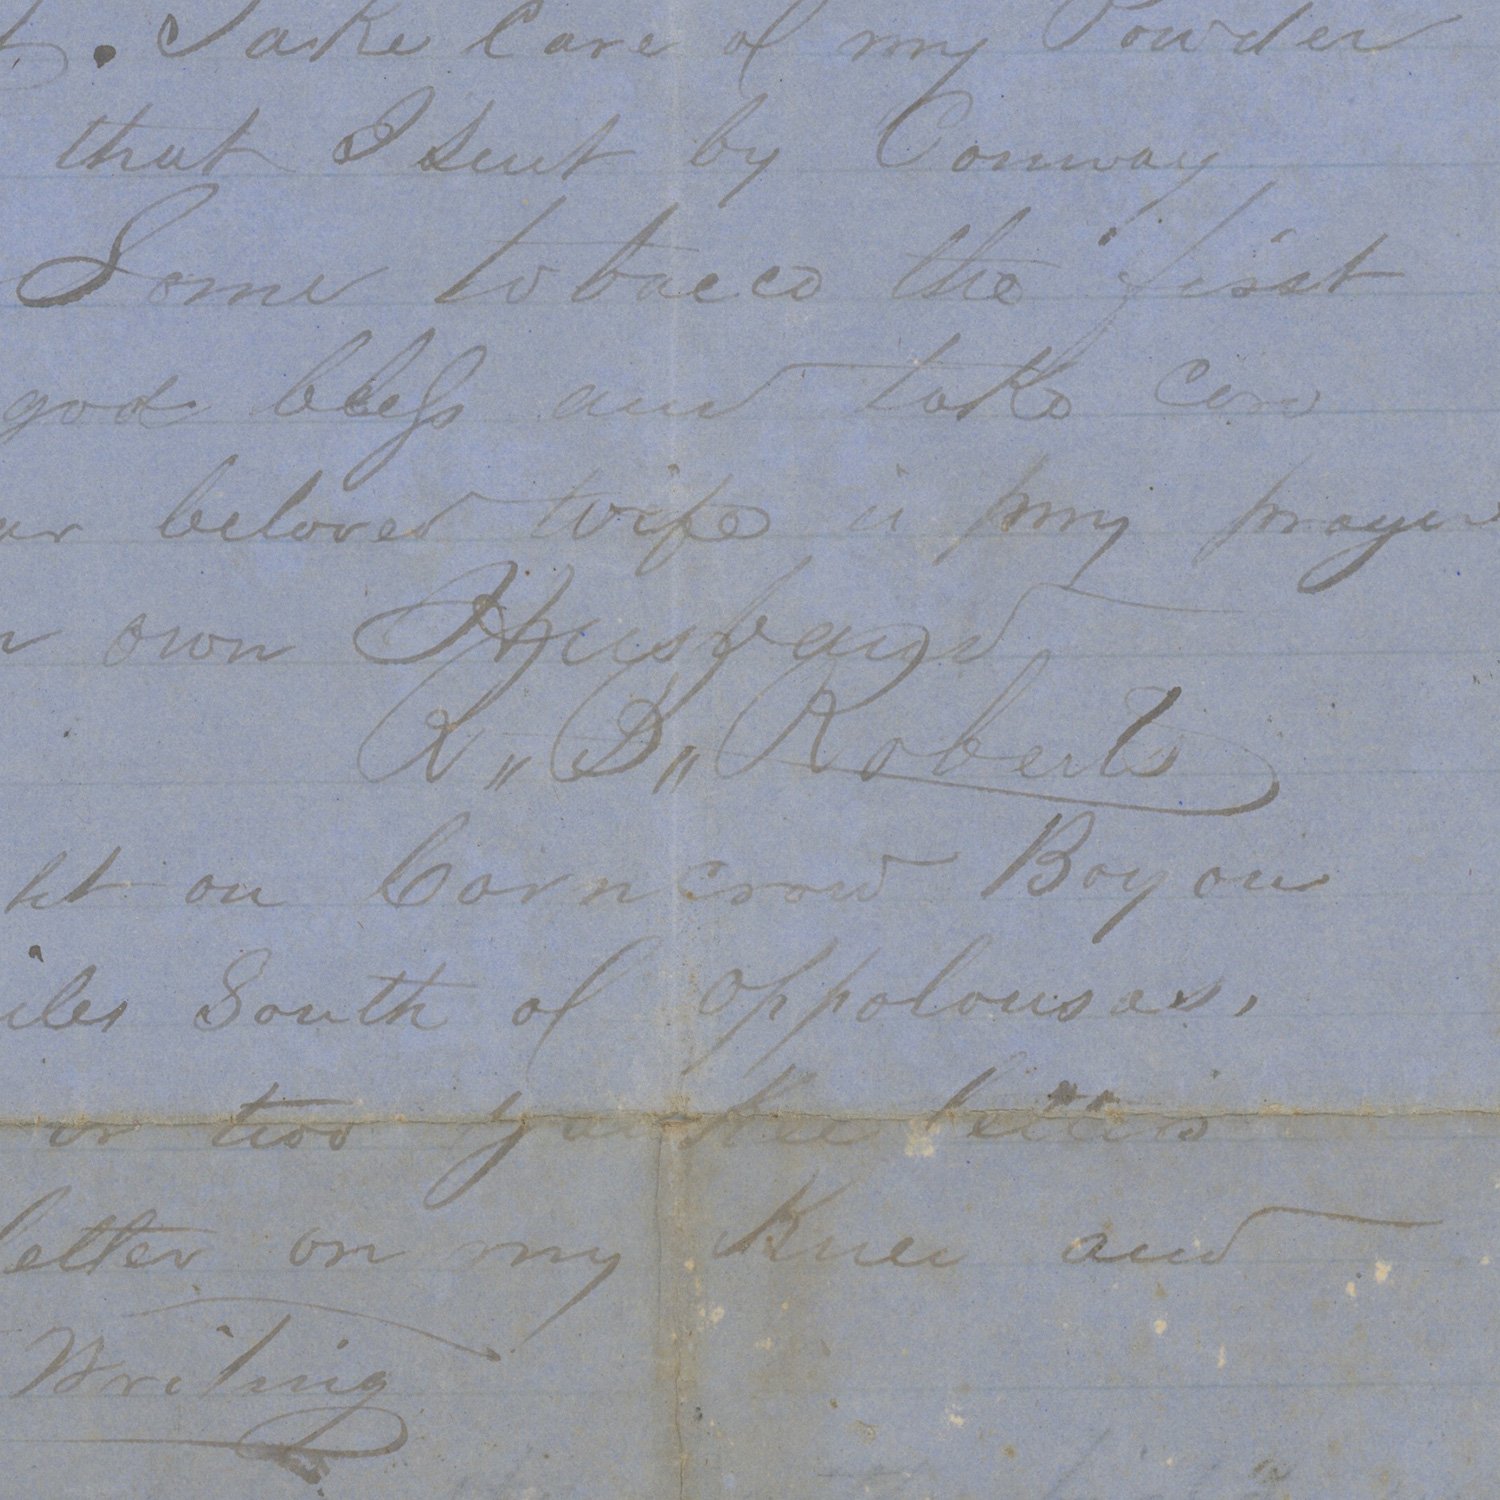 . Take Care of my Powder
that I sent by Conway
Some tobacco the first
god bless and take care
beloved wife is my prayer
own Husband
R" B" Roberts
on Corncrow Boyou
iles South of Oppolousas,
or two yankee letters
letter on my Knee and
Writing